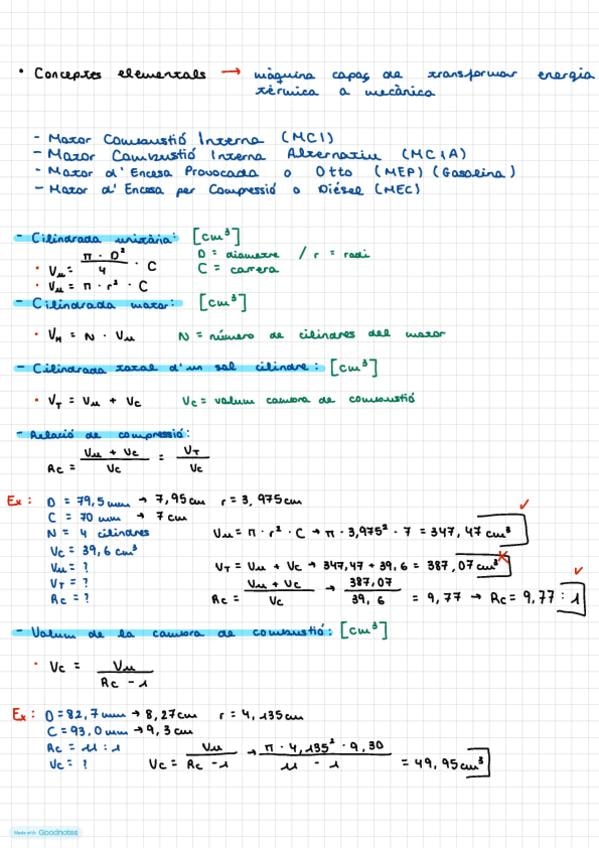 • Conceptes elementals → màquina capaç de transformar energia
tèrmica a mecànica
- Motor Combustió Interna (MCI)
- Motor Combustió Interna Alternatiu (MCIA)
- Motor d'Encesa Provocada o Otto (MEP) (Gasolina)
- Motor d'Encesa per Compressió o Dièsel (MEC)
- Cilindrada unitària: [cm³]
• Vu = π · D² / 4 · C D = diàmetre / r = radi
• Vu = π · r² · C C = carrera
- Cilindrada motor: [cm³]
• VM = N · Vu N = número de cilindres del motor
- Cilindrada total d'un sol cilindre: [cm³]
• VT = Vu + Vc Vc = volum cambra de combustió
- Relació de compressió:
Rc = Vu + Vc / Vc = VT / Vc
Ex: D = 79,5 mm → 7,95 cm r = 3,975 cm
C = 70 mm → 7 cm
N = 4 cilindres Vu = π · r² · C → π · 3,975² · 7 = 347,47 cm³ ✓
Vc = 39,6 cm³
Vu = ? VT = Vu + Vc → 347,47 + 39,6 = 387,07 cm³ ✗
VT = ?
Rc = ? Rc = Vu + Vc / Vc → 387,07 / 39,6 = 9,77 → Rc = 9,77 : 1 ✓
- Volum de la cambra de combustió: [cm³]
• Vc = Vu / Rc - 1
Ex: D = 82,7 mm → 8,27 cm r = 4,135 cm
C = 93,0 mm → 9,3 cm
Rc = 11 : 1
Vc = ? Vc = Vu / Rc - 1 → π · 4,135² · 9,30 / 11 - 1 = 49,95 cm³
Made with Goodnotes